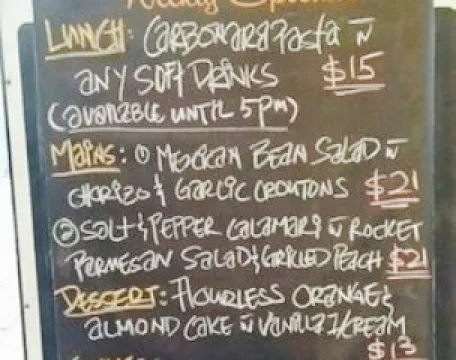 Weekly Specials
LUNCH: CARBONARA PASTA N
ANY SOFT DRINKS $15
(AVAILABLE UNTIL 5PM)
MAINS: ① MEXICAN BEAN SALAD N
CHORIZO & GARLIC CROUTONS $21
② SALT & PEPPER CALAMARI N ROCKET
PARMESAN SALAD & GRILLED PEACH $21
DESSERT: FLOURLESS ORANGE &
ALMOND CAKE N VANILLA I/CREAM
$13